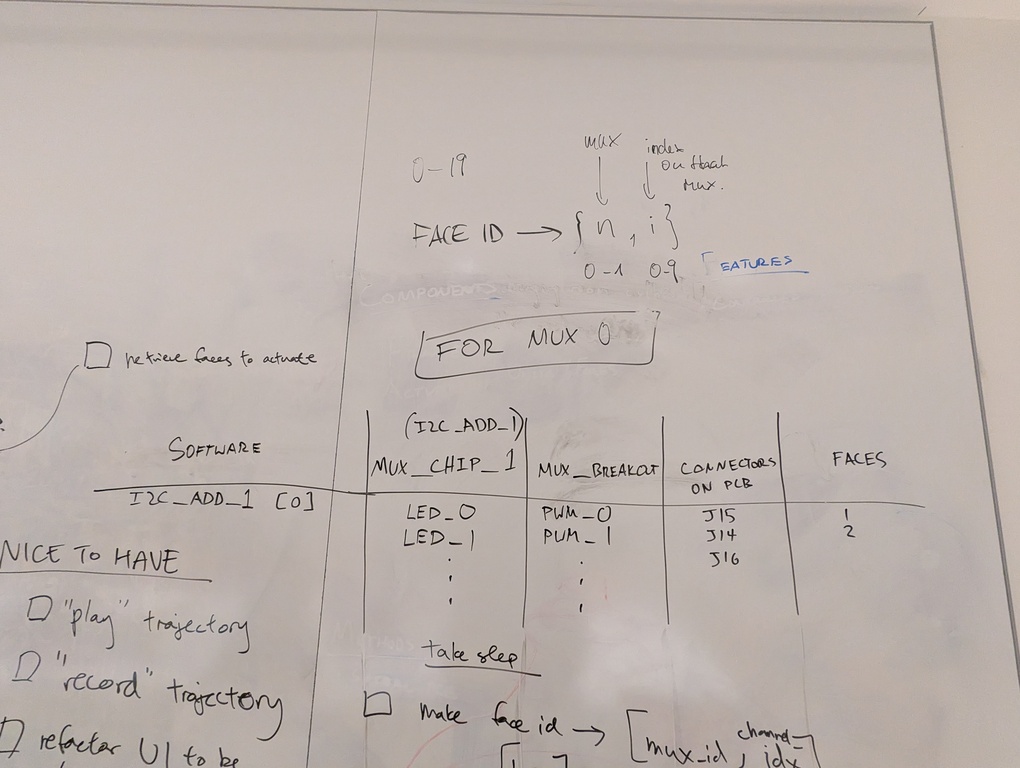 0-19
mux
index
on that
mux.
FACE ID → { n , i }
0-1 0-9
FEATURES
COMPONENTS
FOR MUX 0
retrieve faces to actuate
SOFTWARE
(I2C_ADD_1)
MUX_CHIP_1
MUX_BREAKOUT
CONNECTORS
ON PCB
FACES
I2C_ADD_1 [0]
LED_0 PWM_0 J15 1
LED_1 PWM_1 J14 2
J16
NICE TO HAVE
"play" trajectory
"record" trajectory
refactor UI to be
take step
make face id → [mux_id, channel_
idx]